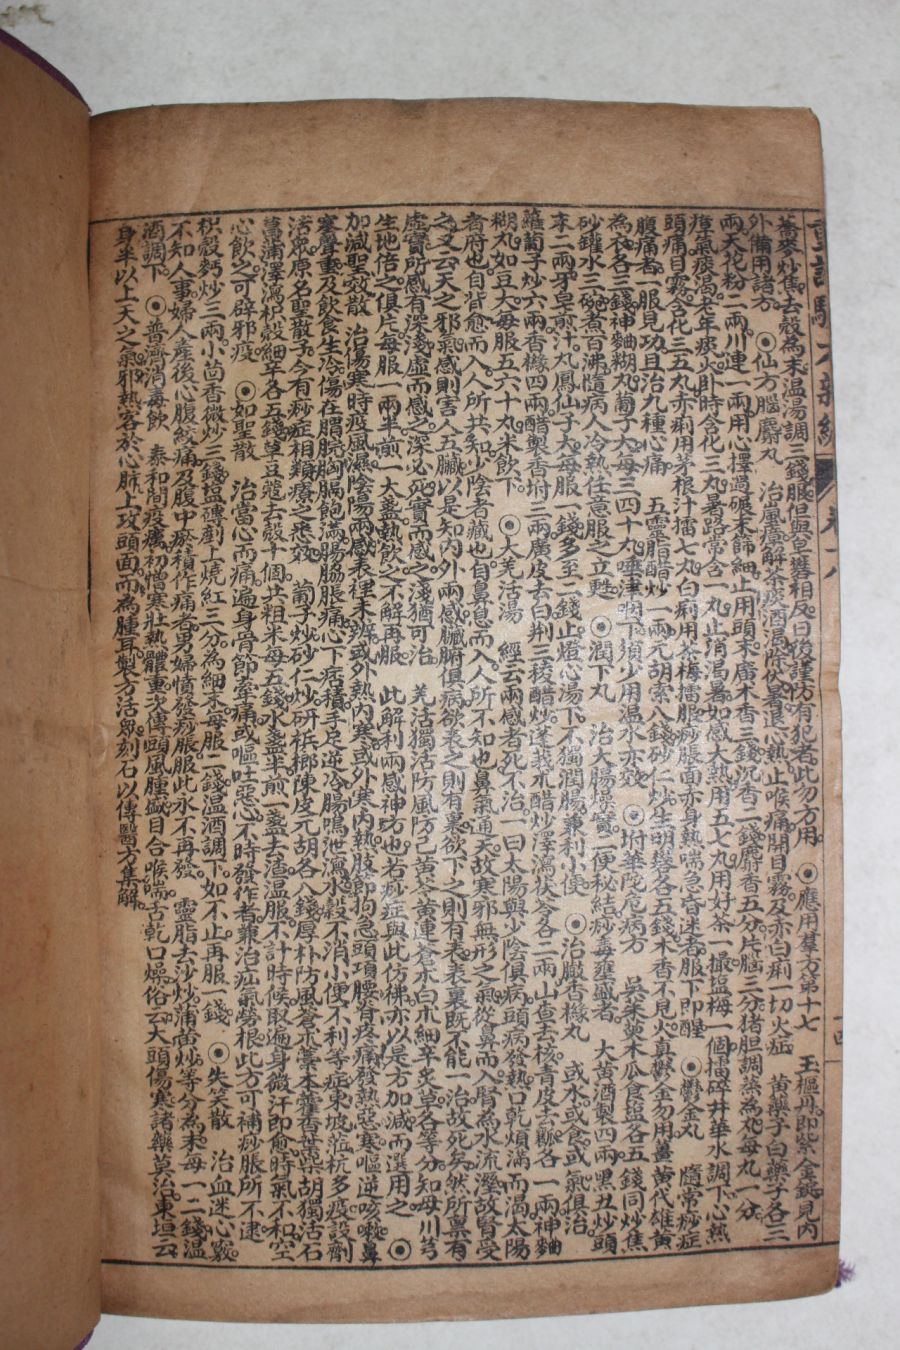 蕎麥炒焦去殼為末温湯調三錢服但與皂礬相反日後謹防有犯者此勿方用 ◉應用羣方第十七 玉樞丹即紫金錠見內
外備用諸方 ◉仙方腦麝丸 治風痰解茶痰酒渴除伏暑退心熱止喉痛開目霧及赤白痢一切火症 黄藥子白藥子各三
兩天花粉二兩川連一兩用心擇過碾末篩細止用頭末廣木香三錢沉香一錢麝香五分片腦三分猪胆調蒸為丸每丸一分
瘴氣痰渴老年痰火卧時含化三丸暑路常含一丸止消渴暑如感大熱用五七丸用好茶一撮塩梅一個擂碎井華水調下心熱
頭痛目霧含化三五丸赤痢用茅根汁擂七丸白痢用茶梅擂服痧脹面赤身熱喘急昏迷者服下即醒 ◉鬱金丸 隨常痧症
腹痛者一服見功且治九種心痛 五靈脂醋炒一兩元胡索八錢砂仁炒生明礬各五錢木香不見火真鬱金勿用薑黄代雄黄
為衣各三錢神麯糊丸蔔子大每三四十丸唾津咽下須少用温水亦效 ◉附華陀危病方 吳茱萸木瓜食塩各五錢同炒焦
砂鑵水三碗煮百沸隨病人冷熱任意服之立甦 ◉潤下丸 治大腸燥實二便秘結痧毒壅盛者 大黄酒製四兩黑丑炒頭
末二兩牙皂煎汁丸鳳仙子大每服一錢多至二錢止燈心湯下不獨潤腸兼利小便 ◉治臌香櫞丸 或水或食或氣俱治
蘿蔔子炒六兩香櫞四兩醋製香附三兩廣皮去白荆三稜醋炒蓬莪朮醋炒澤瀉茯苓各二兩山查去核青皮去瓤各一兩神麯
糊丸如豆大每服五六十丸米飲下 ◉大羌活湯 經云兩感者死不治一曰太陽與少陰俱病頭病發熱口乾煩滿而渴太陽
者府也自背愈而入人所共知少陰者藏也自鼻息而入人所不知也鼻氣通天故寒邪無形之氣從鼻而入腎為水流溼故腎受
之又云天之邪氣感則害人五臟以是知内外兩感臟腑俱病欲表之則有裏欲下之則有表表裏既不能一治故死矣然所稟有
虛實所感有深淺虛而感之深必死實而感之淺猶可治 羌活獨活防風防己黄芩黄連蒼朮白朮細辛炙草各等分知母川芎
生地倍之俱片每服一兩半煎一大盞熱飲之不解再服 此解利兩感神方也若痧症與此仿彿亦以是方加減而選用之 ◉
加減聖效散 治傷寒時疫風濕陰陽兩感表裡未辨或外熱内寒或外寒内熱肢節拘急頭項腰脊疼痛發熱惡寒嘔逆咳嗽鼻
塞聲重及飲食生冷傷在胃脘胸膈飽滿腸脇脹痛心下痞積手足逆冷腸鳴泄瀉水穀不消小便不利等症東坡蒞杭多疫設劑
活眾原名聖散子今有痧症相類療之悉效 蔔子炒砂仁炒研梹榔陳皮元胡各八錢厚朴防風蒼朮藁本藿香柴胡獨活石
菖蒲澤瀉枳殼細辛各五錢草豆蔻去殼十個共粗末每五錢水盞半煎一盞去渣温服不計時候取遍身微汗即愈時氣不和空
心飲之可辟邪疫 ◉如聖散 治當心而痛遍身骨節牽痛或嘔吐惡心不時發作者兼治疝氣勞根此方可補痧脹所不逮
枳殼麪炒三兩小茴香微炒三錢塩磚剷上燒紅三分為細末每服二錢温酒調下如不止再服一錢 ◉失笑散 治血迷心竅
不知人事婦人産後心腹絞痛及腹中瘀積作痛者男婦憤發痧脹服此永不再發 靈脂去沙炒蒲黄炒等分為末每一二錢温
酒調下 ◉普濟消毒飲 泰和間疫癘初憎寒壯熱體重次傳頭風腫盛目合喉喘舌乾口燥俗云大頭傷寒諸藥莫治東垣云
身半以上天之氣邪熱客於心肺上攻頭面而為腫耳製方活眾刻石以傳醫方集解